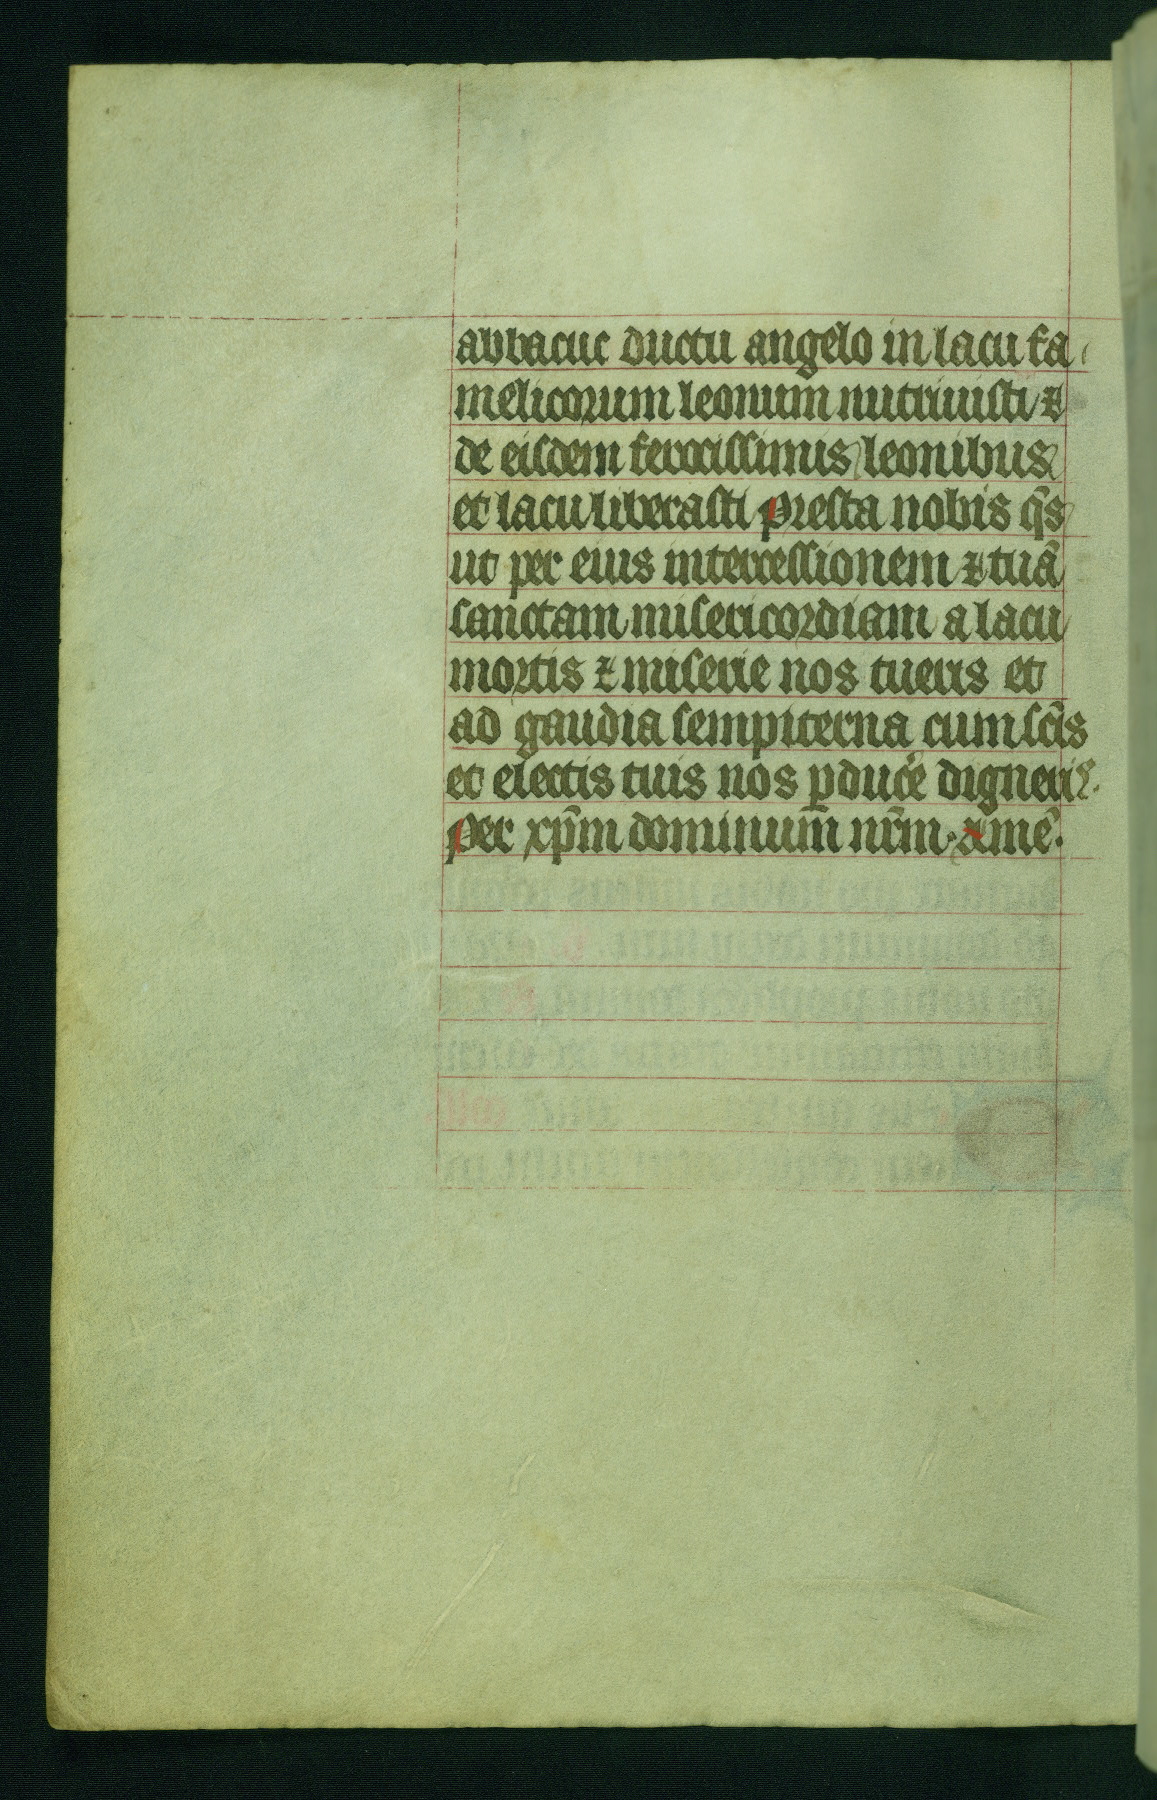 abbacuc ductu angelo in lacu fa
melicorum leonum nutriuisti ⁊
de eisdem ferocissimis leonibus
et lacu liberasti Presta nobis q̄s
ut per eius intercessionem ⁊ tuā
sanctam misericordiam a lacu
mortis ⁊ miserie nos tueris et
ad gaudia sempiterna cum sc̄is
et electis tuis nos ꝑducē digneris.
Per xp̄m dominum̄ nr̄m. Amē.